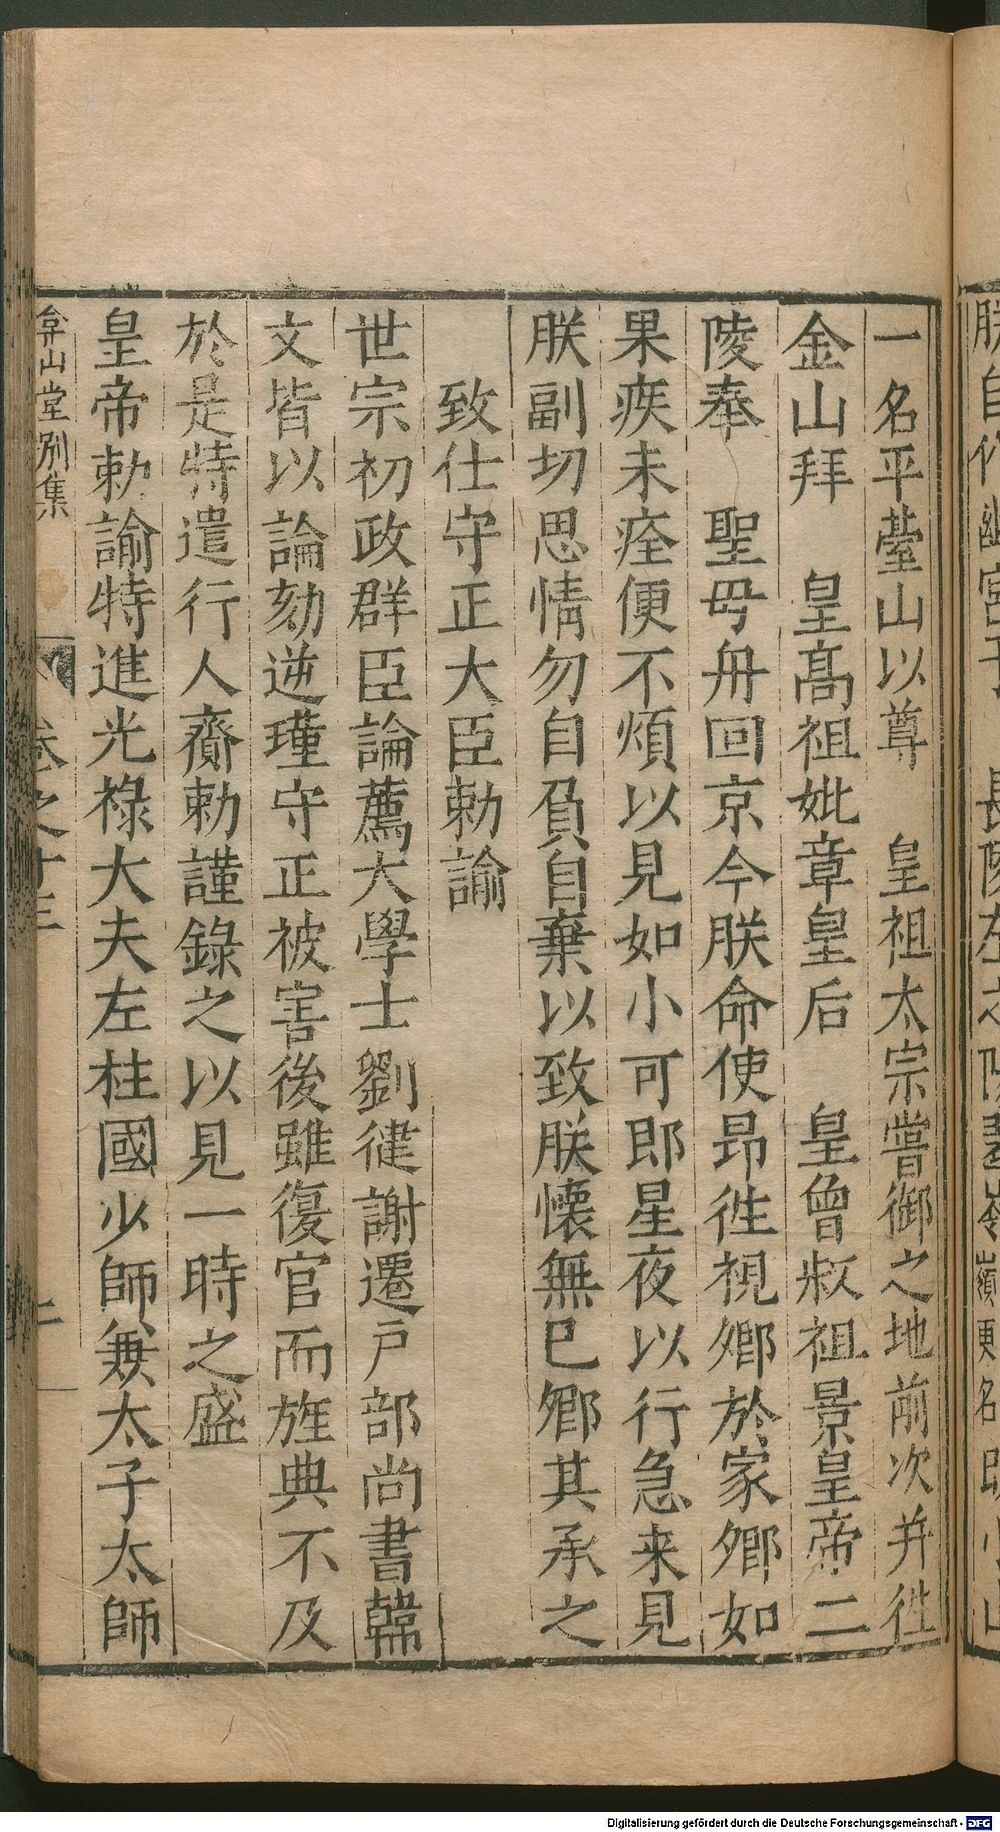 一名平臺山以尊　皇祖太宗嘗御之地前次并徃
金山拜　皇高祖妣章皇后　皇曾叔祖景皇帝二
陵奉　聖母舟回京今朕命使昂徃視鄉於家鄉如
果疾未痊便不煩以見如小可即星夜以行急来見
朕副切思情勿自負自棄以致朕懷無巳鄉其承之
致仕守正大臣勅諭
世宗初政群臣論薦大學士劉健謝遷戶部尚書韓
文皆以論劾逆瑾守正被害後雖復官而旌典不及
於是特遣行人齎勅謹錄之以見一時之盛
皇帝勅諭特進光祿大夫左柱國少師兼太子太師
弇山堂別集
卷之十三
二
Digitalisierung gefördert durch die Deutsche Forschungsgemeinschaft - DFG